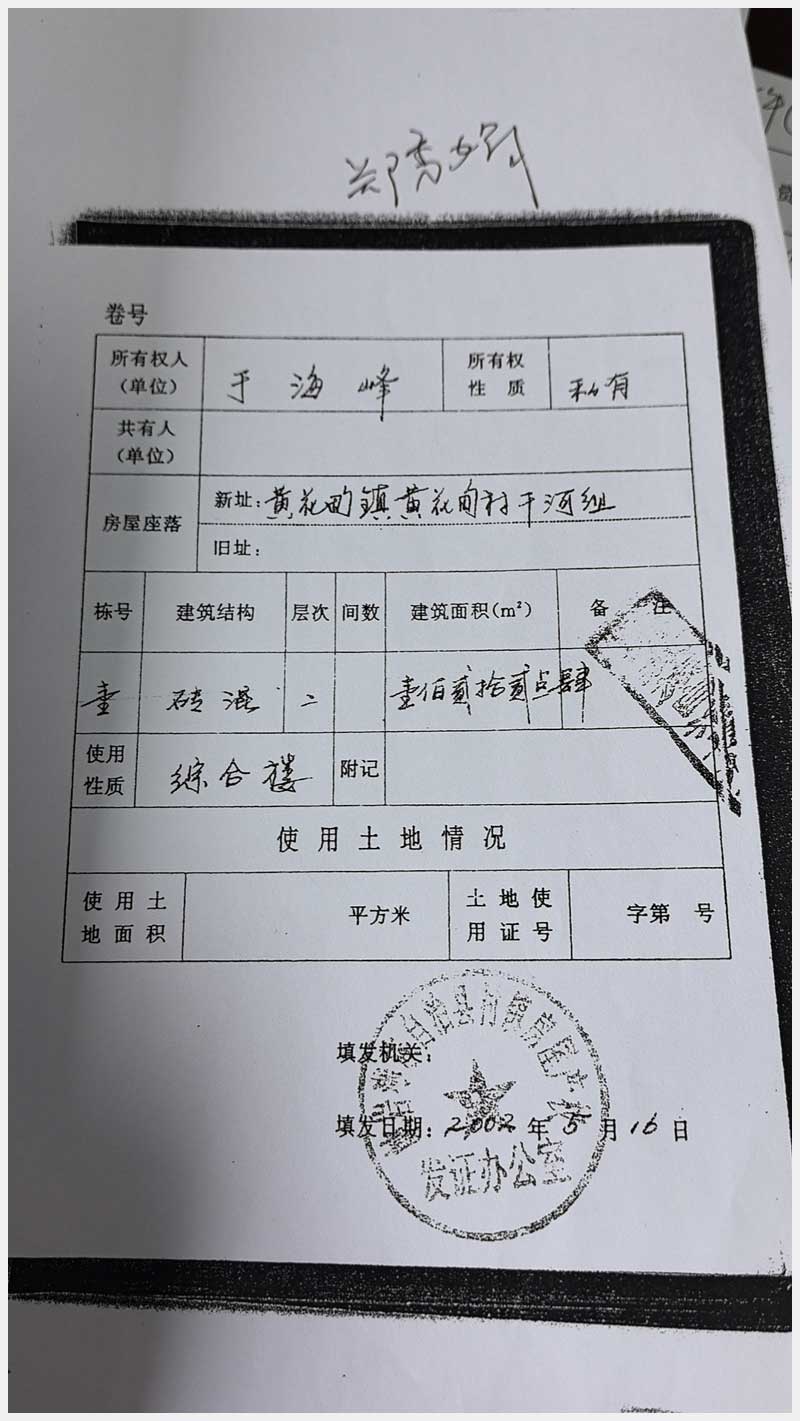 卷号
所有权人 于海峰 所有权 私有
（单位） 性 质
共有人
（单位）
房屋座落 新址：黄花甸镇黄花甸村干河组
旧址：
栋号 建筑结构 层次 间数 建筑面积(m²) 备 注
壹 砖混 二 壹佰贰拾贰点肆
使用 综合楼 附记
性质
使用土地情况
使用土 平方米 土地使 字第 号
地面积 用证号
自治县村镇房屋产
填发机关：
填发日期：2002年5月16日
发证办公室